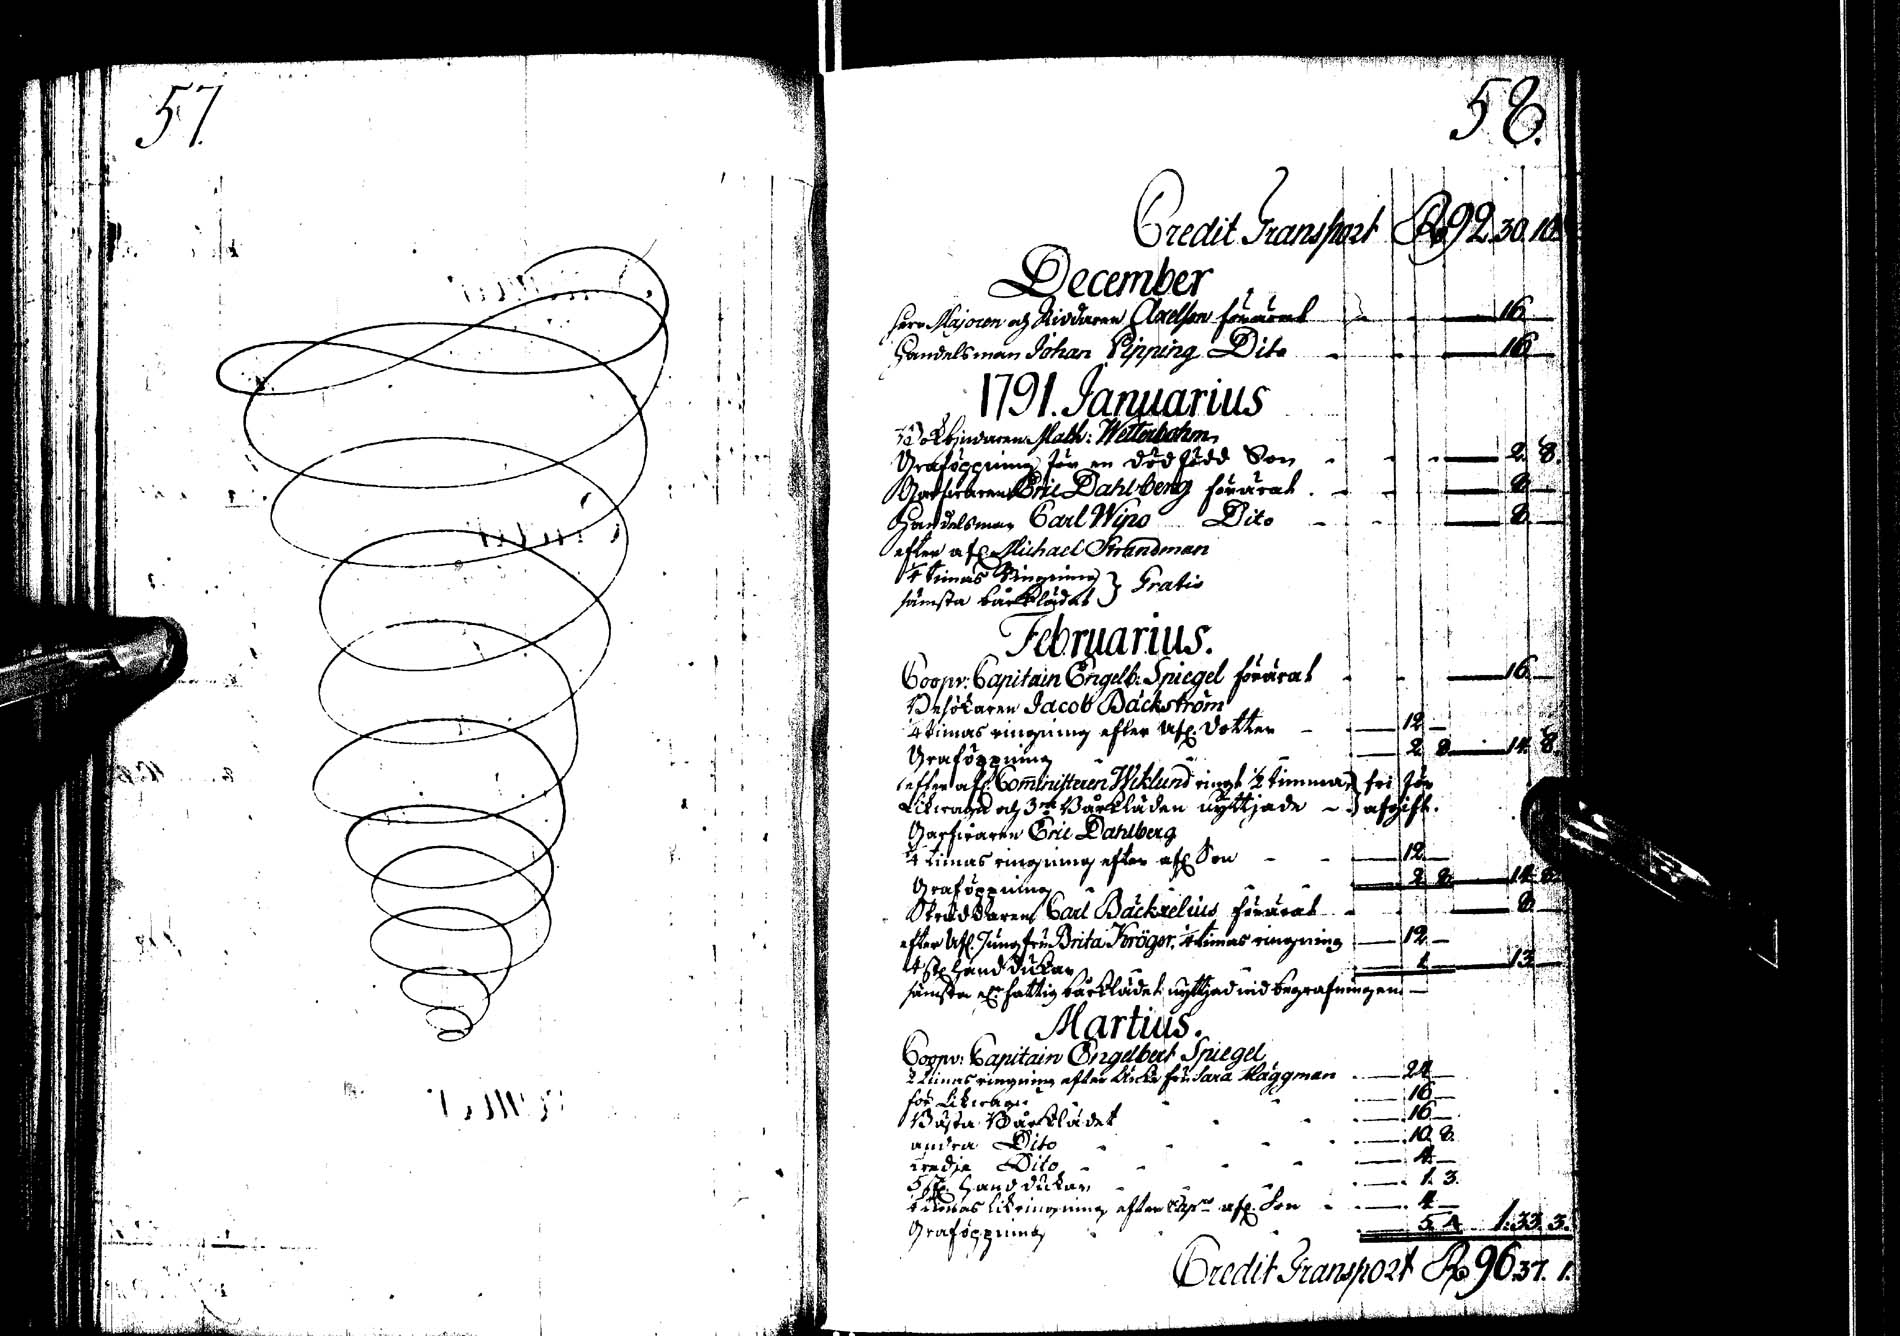 57.
58.
Credit Transport Rd 92. 30. 10.
December
Herr Majoren och Riddaren Axelson förärat 16
Handelsman Johan Pipping Dito 16
1791. Januarius
Bokbindaren Math: Wetterbohm
Graföppning för en död född Son 2. 8.
Garfvaren Eric Dahlberg förärat 8
Handelsman Carl Wipo Dito 8
efter afl. Michael Strandman
1/4 timas Ringning } Gratis
sämsta bårklädet
Februarius.
Coopv: Capitain Engelb: Spiegel förärat 16
Besökaren Jacob Bäckström
1/4 timas ringning efter Afl. Dotter 12
Graföppning 2 8 14 8.
efter afl. Comministeren Wiklund ringt 1/2 timma } fri för
Likvagn och 3ne Bårkläden nyttjade } afgift.
Garfvaren Eric Dahlberg
1/4 timas ringning efter afl. Son 12
Graföppning 2 8 14 8
Skräddaren Carl Bäckvelius förärat 8
efter Afl. Jungfrun Brita Kröger, 1/4 timas ringning 12
4 st. handdukar 1 13
sämsta el. fattig bårklädet nyttjad vid begrafningen
Martius.
Coopv: Capitain Engelbert Spiegel
timas ringning efter Enke fru Sara Häggman 24
för Likvagn 16
Bästa Bårklädet 16
andra Dito 10 8
tredje Dito 4
5 st. handdukar 1. 3.
timas likringning efter afl. Son 4
Graföppning 5 4 1. 33. 3.
Credit Transport Rd 96. 37. 1.